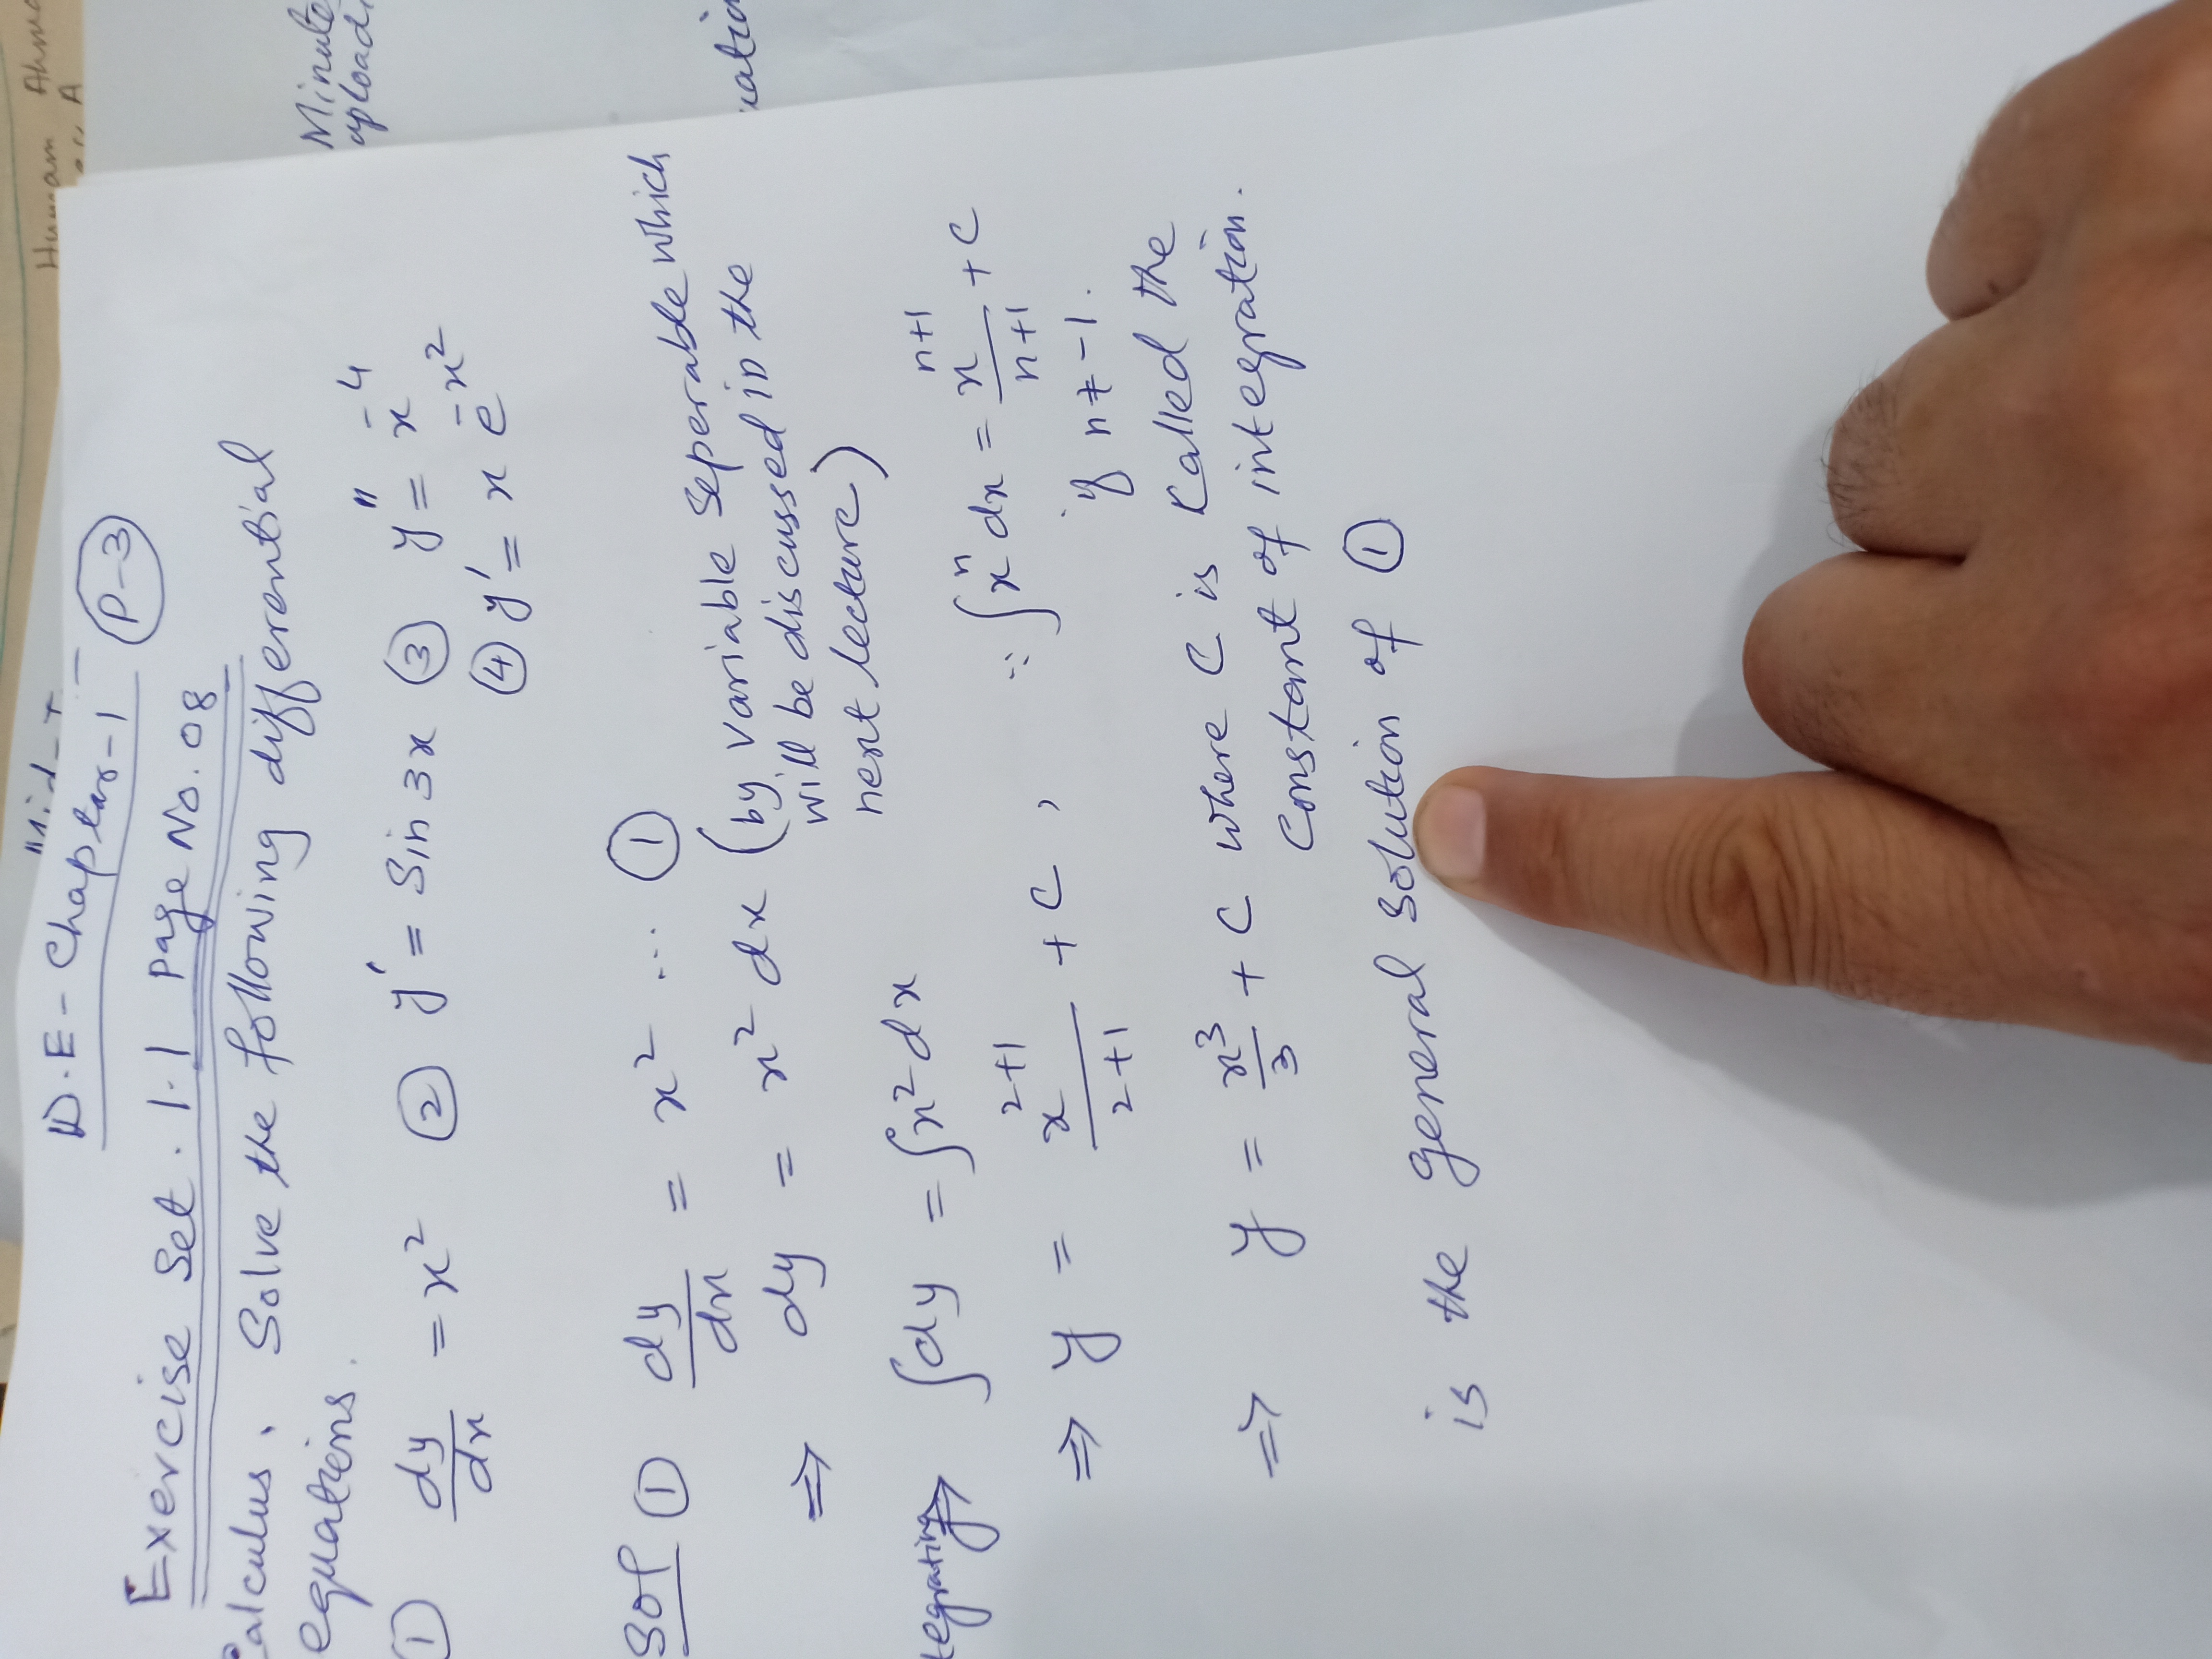 Humam Ahma
A
Minute
upload
uatio
D.E - Chapter-1 P-3
Exercise Set. 1.1 Page No. 08
Calculus. Solve the following differential
equations.
① dy/dx = x² ② y' = Sin 3x ③ y'' = x⁻⁴
④ y' = x e^-x²
Sol ① dy/dx = x² ... ①
⇒ dy = x² dx (by variable Seperable which
will be discussed in the
next lecture)
tegrating ∫dy = ∫x² dx
⇒ y = x^2+1/2+1 + C , ∵ ∫xⁿ dx = x^n+1/n+1 + C
if n ≠ -1.
⇒ y = x³/3 + C where C is Called the
Constant of integration.
is the general Solution of ①